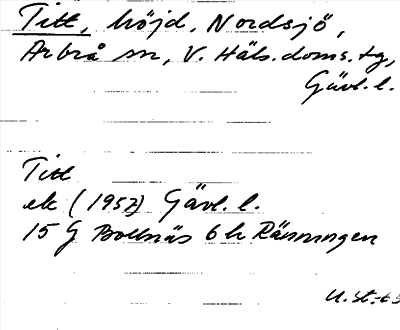 Titt, höjd, Nordsjö,
Arbrå sn, V. Häls. doms. tg,
Gävl. l.
Titt
ek (1957) Gävl. l.
15 G Bollnäs 6 h Ränningen
U. St.-63